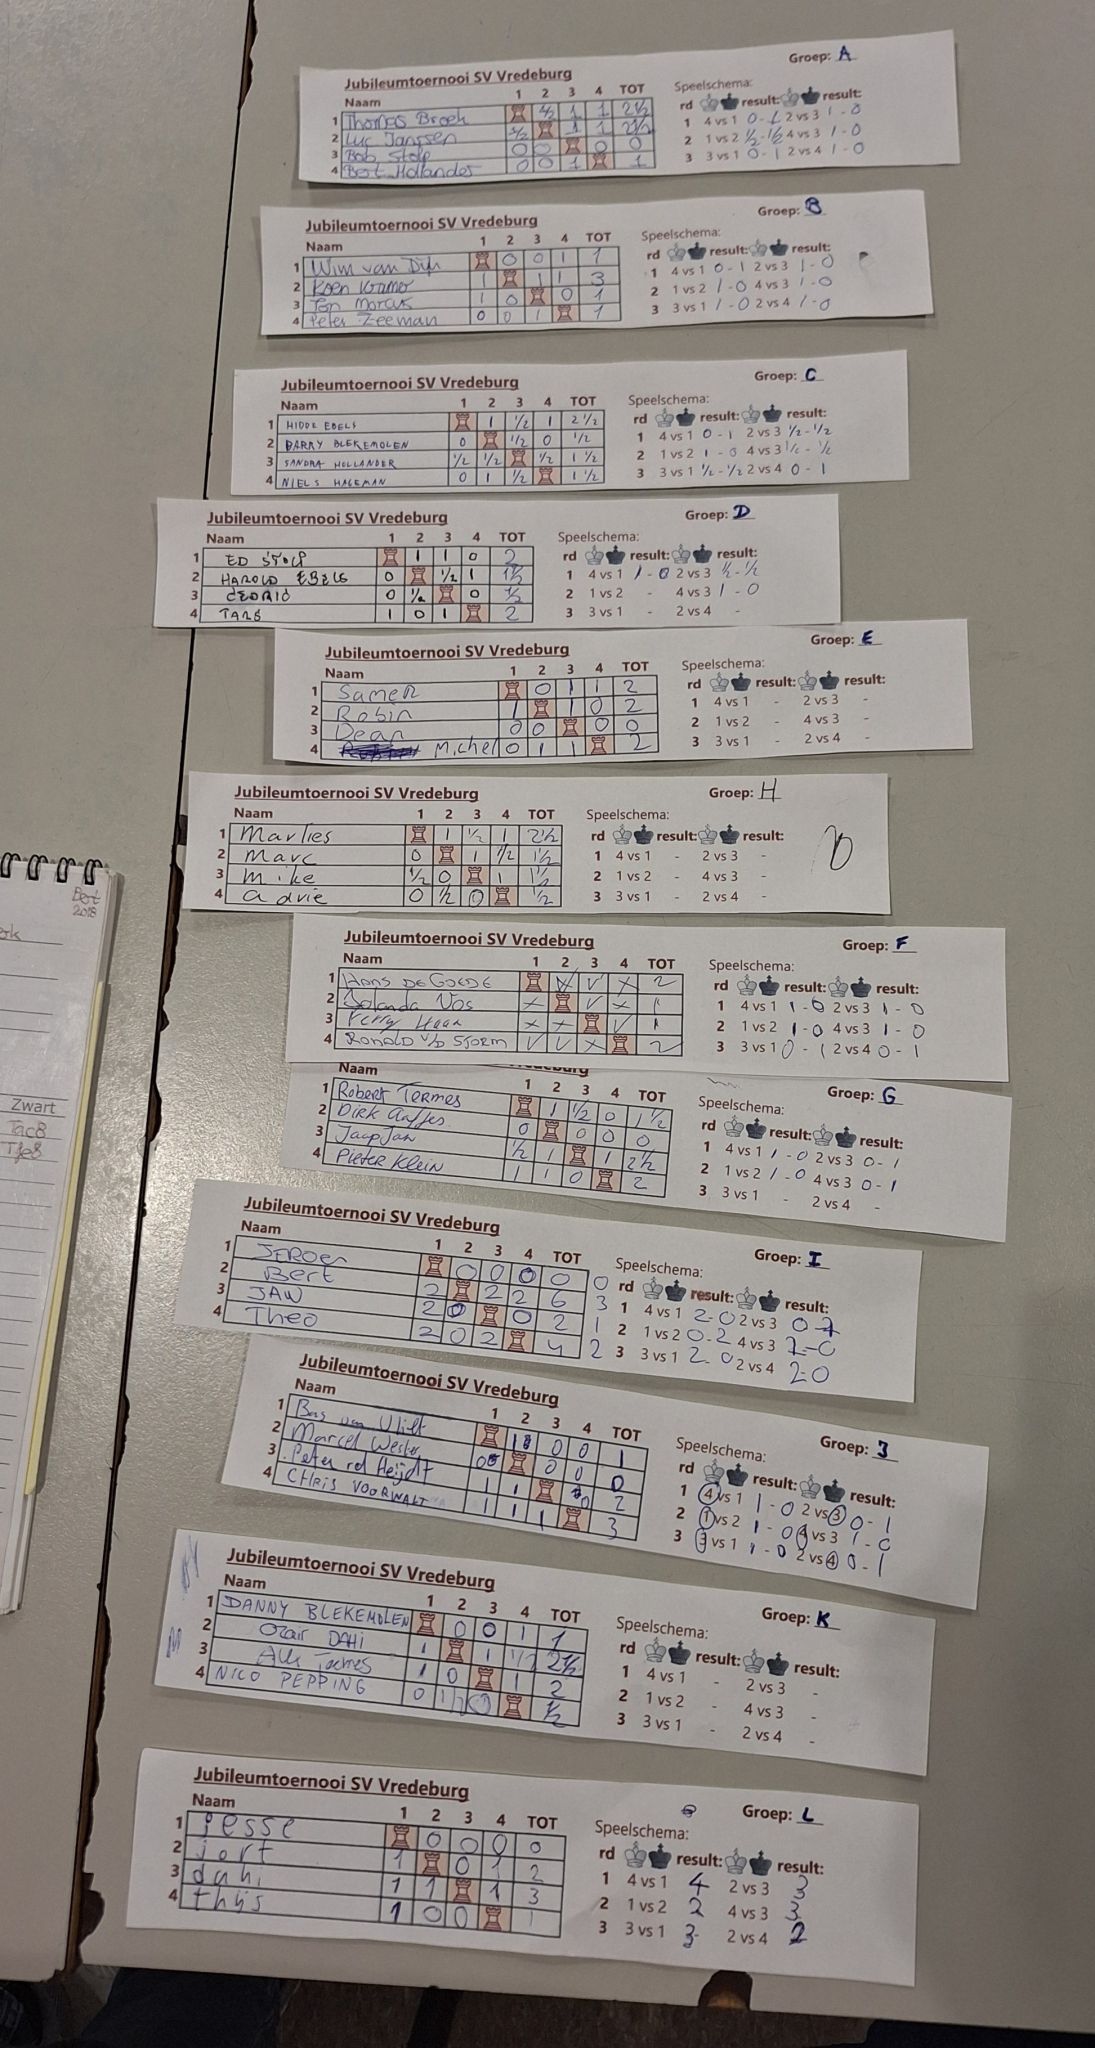 Groep: A
Jubileumtoernooi SV Vredeburg
Naam 1 2 3 4 TOT
1 Thomas Broek ½ 1 1 2½
2 Luc Janssen ½ 1 1 2½
3 Bob Stolp 0 0 0 0
4 Bert Hollander 0 0 1 1
Speelschema:
rd result: result:
1 4 vs 1 0 - 1 2 vs 3 1 - 0
2 1 vs 2 ½ - ½ 4 vs 3 1 - 0
3 3 vs 1 0 - 1 2 vs 4 1 - 0
Groep: B
Jubileumtoernooi SV Vredeburg
Naam 1 2 3 4 TOT
1 Wim van Dijk 0 0 1 1
2 Koen Kramer 1 1 1 3
3 Ton Marcus 1 0 0 1
4 Peter Zeeman 0 0 1 1
Speelschema:
rd result: result:
1 4 vs 1 0 - 1 2 vs 3 1 - 0
2 1 vs 2 1 - 0 4 vs 3 1 - 0
3 3 vs 1 1 - 0 2 vs 4 1 - 0
Groep: C
Jubileumtoernooi SV Vredeburg
Naam 1 2 3 4 TOT
1 HIDDE EBELS 1 ½ 1 2 ½
2 BARRY BLEKEMOLEN 0 ½ 0 ½
3 SANDRA HOLLANDER ½ ½ ½ 1 ½
4 NIELS HAGEMAN 0 1 ½ 1 ½
Speelschema:
rd result: result:
1 4 vs 1 0 - 1 2 vs 3 ½ - ½
2 1 vs 2 1 - 0 4 vs 3 ½ - ½
3 3 vs 1 ½ - ½ 2 vs 4 0 - 1
Groep: D
Jubileumtoernooi SV Vredeburg
Naam 1 2 3 4 TOT
1 ED STOLP 1 1 0 2
2 HAROLD EBELS 0 ½ 1 1½
3 CEDRIC 0 ½ 0 ½
4 1 0 1 2
Speelschema:
rd result: result:
1 4 vs 1 1 - 0 2 vs 3 ½ - ½
2 1 vs 2 - 4 vs 3 1 - 0
3 3 vs 1 - 2 vs 4 -
Groep: E
Jubileumtoernooi SV Vredeburg
Naam 1 2 3 4 TOT
1 Samer 0 1 1 2
2 Robin 1 1 0 2
3 Dean 0 0 0 0
4 Michel 0 1 1 2
Speelschema:
rd result: result:
1 4 vs 1 - 2 vs 3 -
2 1 vs 2 - 4 vs 3 -
3 3 vs 1 - 2 vs 4 -
Groep: H
Jubileumtoernooi SV Vredeburg
Naam 1 2 3 4 TOT
1 Marlies 1 ½ 1 2½
2 Marc 0 1 ½ 1½
3 Mike ½ 0 1 1½
4 advie 0 ½ 0 ½
Speelschema:
rd result: result:
1 4 vs 1 - 2 vs 3 -
2 1 vs 2 - 4 vs 3 -
3 3 vs 1 - 2 vs 4 -
Groep: F
Jubileumtoernooi SV Vredeburg
Naam 1 2 3 4 TOT
1 HANS DE GOEDE V V X 2
2 Jolanda Vos X V X 1
3 Ferry Haan X X V 1
4 RONALD v/d STORM V V X 2
Speelschema:
rd result: result:
1 4 vs 1 1 - 0 2 vs 3 1 - 0
2 1 vs 2 1 - 0 4 vs 3 1 - 0
3 3 vs 1 0 - 1 2 vs 4 0 - 1
Groep: G
Naam 1 2 3 4 TOT
1 Robert Termes 1 ½ 0 1 ½
2 Dirk Aafjes 0 0 0 0
3 JaapJan ½ 1 1 2½
4 Pieter Klein 1 1 0 2
Speelschema:
rd result: result:
1 4 vs 1 1 - 0 2 vs 3 0 - 1
2 1 vs 2 1 - 0 4 vs 3 0 - 1
3 3 vs 1 - 2 vs 4 -
Groep: I
Jubileumtoernooi SV Vredeburg
Naam 1 2 3 4 TOT
1 JEROEN 0 0 0 0 0
2 Bert 2 2 2 6 3
3 JAN 2 0 0 2 1
4 Theo 2 0 2 4 2
Speelschema:
rd result: result:
1 4 vs 1 2-0 2 vs 3 0-2
2 1 vs 2 0-2 4 vs 3 2-0
3 3 vs 1 2-0 2 vs 4 2-0
Groep: J
Jubileumtoernooi SV Vredeburg
Naam 1 2 3 4 TOT
1 Bas van Vliet 1 0 0 1
2 Marcel Wester 0 0 0 0
3 Peter vd Heijdt 1 1 0 2
4 CHRIS VOORWALT 1 1 1 3
Speelschema:
rd result: result:
1 4 vs 1 1 - 0 2 vs 3 0 - 1
2 1 vs 2 1 - 0 4 vs 3 1 - 0
3 3 vs 1 1 - 0 2 vs 4 0 - 1
Groep: K
Jubileumtoernooi SV Vredeburg
Naam 1 2 3 4 TOT
1 DANNY BLEKEMOLEN 0 0 1 1
2 Ozair DAHI 1 1 1/2 2½
3 Termes 1 0 1 2
4 NICO PEPPING 0 1/2 0 ½
Speelschema:
rd result: result:
1 4 vs 1 - 2 vs 3 -
2 1 vs 2 - 4 vs 3 -
3 3 vs 1 - 2 vs 4 -
Groep: L
Jubileumtoernooi SV Vredeburg
Naam 1 2 3 4 TOT
1 jesse 0 0 0 0
2 jort 1 0 1 2
3 dahi 1 1 1 3
4 thijs 1 0 0 1
Speelschema:
rd result: result:
1 4 vs 1 4 2 vs 3 3
2 1 vs 2 2 4 vs 3 3
3 3 vs 1 3 2 vs 4 2
Bert
2018
Zwart